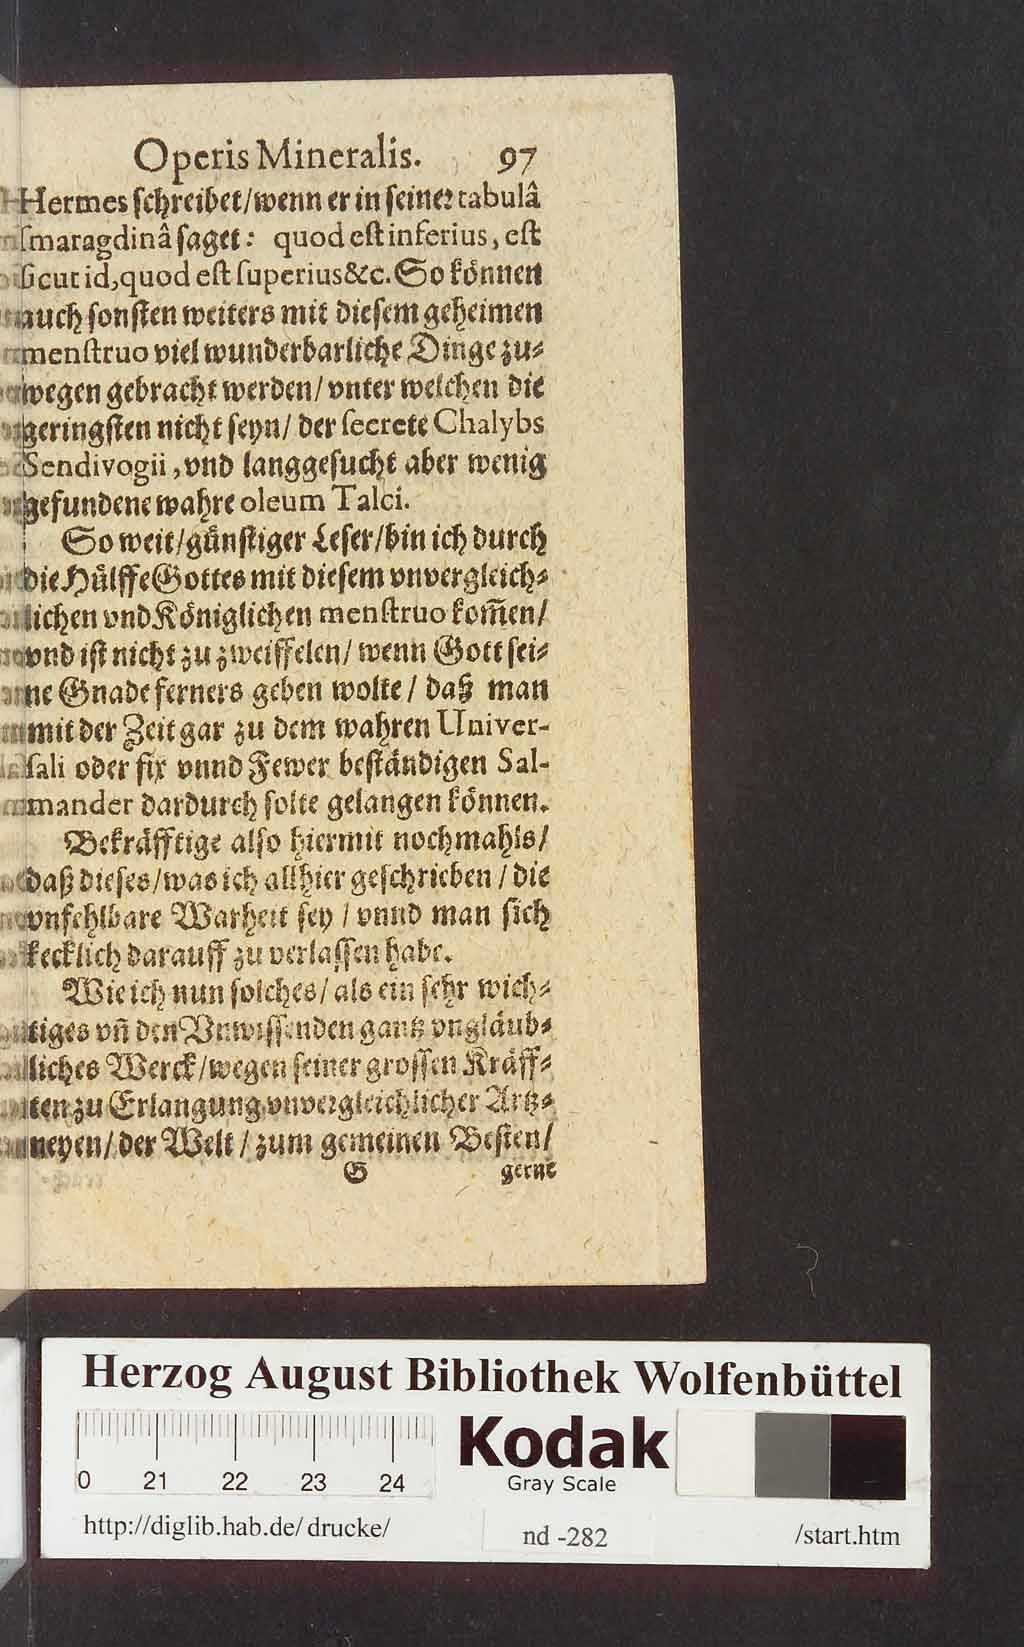 Operis Mineralis. 97
Hermes schreibet/wenn er in seiner tabulâ
smaragdinâ saget: quod est inferius, est
sicut id, quod est superius &c. So können
auch sonsten weiters mit diesem geheimen
menstruo viel wunderbarliche Dinge zu-
wegen gebracht werden/ vnter welchen die
geringsten nicht seyn/ der secrete Chalybs
Sendivogii, vnd langgesucht aber wenig
gefundene wahre oleum Talci.
So weit/günstiger Leser/bin ich durch
die Hülffe Gottes mit diesem vnvergleich-
lichen vnd Königlichen menstruo kom̃en/
vnd ist nicht zu zweiffelen/ wenn Gott sei-
ne Gnade ferners geben wolte / daß man
mit der Zeit gar zu dem wahren Univer-
sali oder fix vnnd Fewer beständigen Sal-
mander dardurch solte gelangen können.
Bekräfftige also hiermit nochmahls/
daß dieses/was ich allhier geschrieben / die
vnfehlbare Warheit sey / vnnd man sich
kecklich darauff zu verlassen habe.
Wie ich nun solches/ als ein sehr wich-
tiges vñ den Vnwissenden gantz vngläub-
liches Werck/wegen seiner grossen Kräff-
ten zu Erlangung vnvergleichlicher Artz-
neyen/ der Welt / zum gemeinen Besten/
G gerne
Herzog August Bibliothek Wolfenbüttel
0 21 22 23 24
Kodak
Gray Scale
http://diglib.hab.de/ drucke/ nd -282 /start.htm